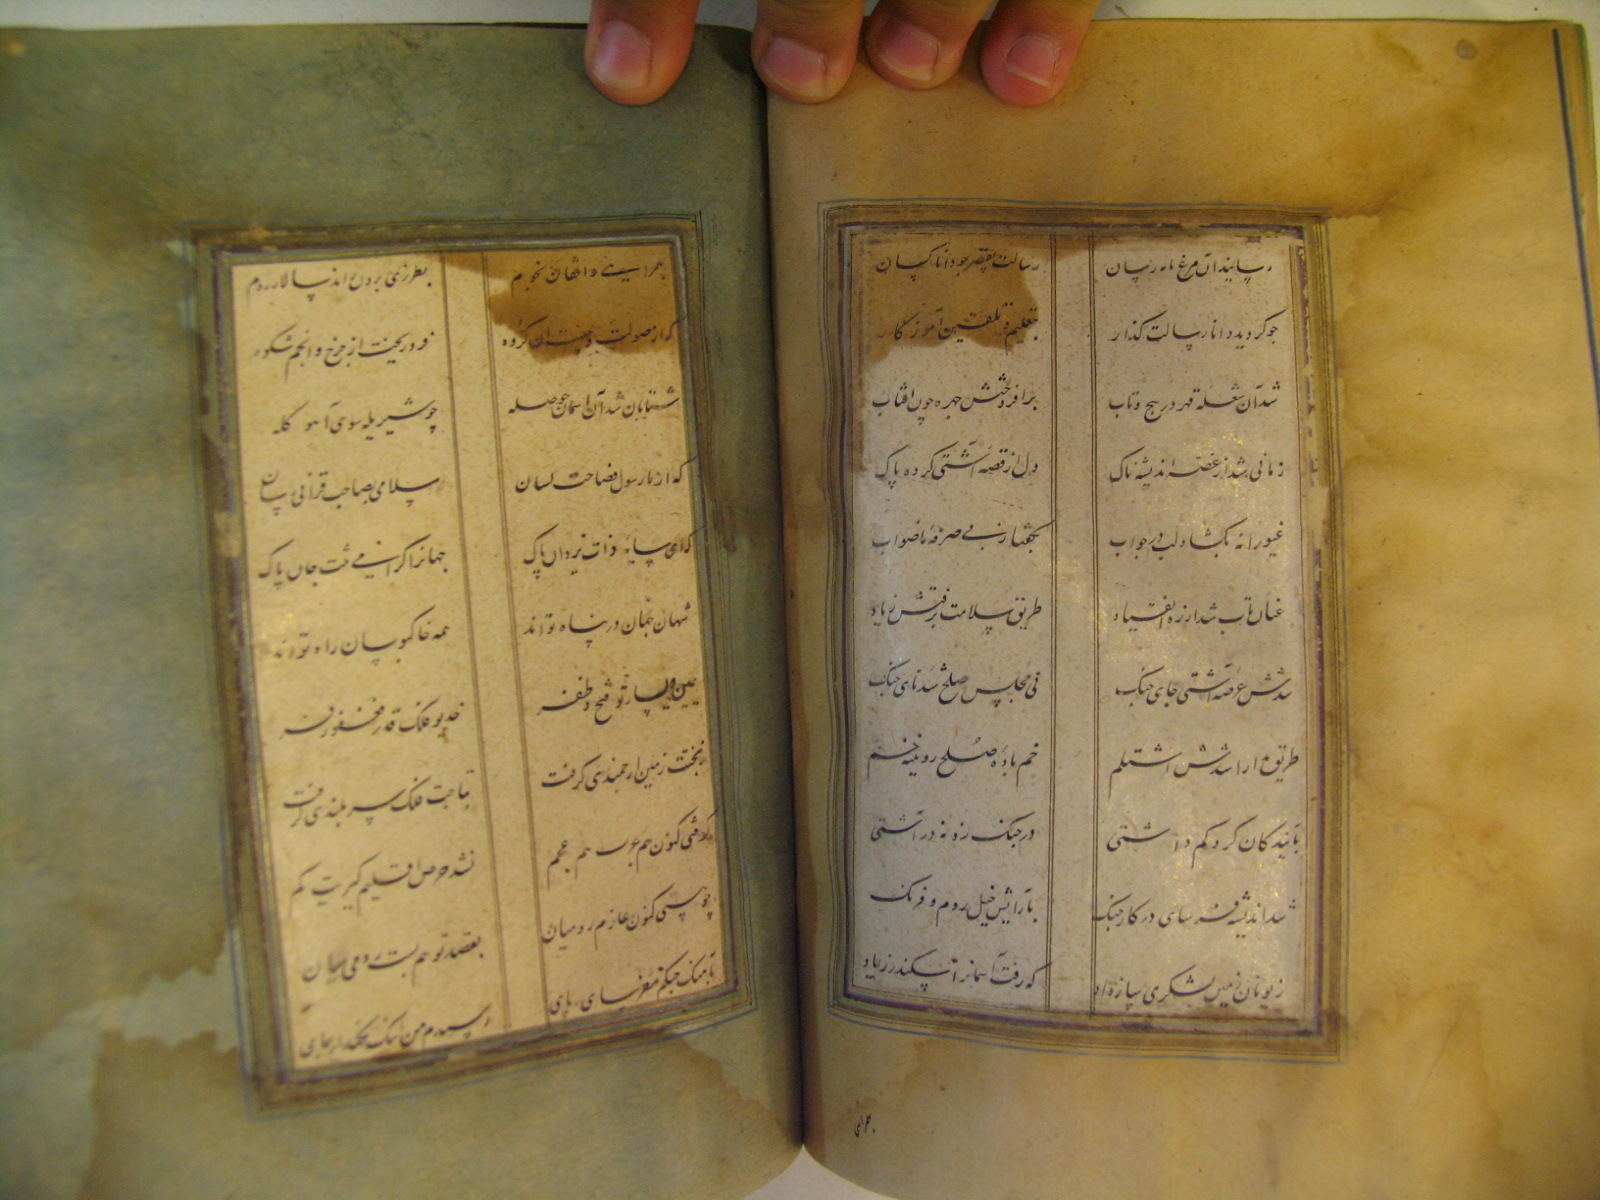 رسانید آن مرغ نامه رسان رسالت بتقصیر جو دانا کسان
چو گردید دانا رسالت گذار بتعلیم و تلقین آموزگار
شد آن شعله قهر در پیچ و تاب برافروختش چهره چون آفتاب
زمانی شد از غصه اندیشه ناک دل از قصه آشتی کرده پاک
غیورانه بگشاد لب در جواب بگفتار بی صرفه ناصواب
عنان تاب شد از ره انقیاد طریق سلامت برفتش ز یاد
شدش عرصه آشتی جای جنگ نی مجلس صلح شد نای جنگ
طریق مدارا شدش اشتلم خم باده صلح رویینه خم
بآیندگان کرد کم آشتی در جنگ زد نه در آشتی
شد اندیشه فرسای در کار جنگ بآرایش خیل روم و فرنگ
ز یونان زمین لشکری ساز داد که رفت آسمانرا سکندر ز یاد
بهمرا
بهمراهیی واشقان نجوم بطرزی برون آمد سالار روم
که از صولت و جنبش آن گروه فرو ریخت از چرخ و انجم شکوه
شتابان شد آن آسمان حوصله چو شیر یله سوی آهو گله
که از ما رسول فصاحت لسان سلامی بصاحب قرانی رسان
که ای سایه ذات یزدان پاک جهانرا گرامی جان پاک
شهان جهان در پناه تواند همه خاکبوسان راه تواند
یمین و یسار تو فتح و ظفر خدیو فلک قدر مغفور فر
ز بختت زمین ارجمندی گرفت بتاجت فلک سربلندی گرفت
گرفتی کنون هم عرب هم عجم نشد حرص اقلیم گیریت کم
چو هستی کنون عازم رومیان بقصد تو هم بست رومی میان
بآهنگ جنگم مفرسای پای رسیدم من اینک نگهدار جای